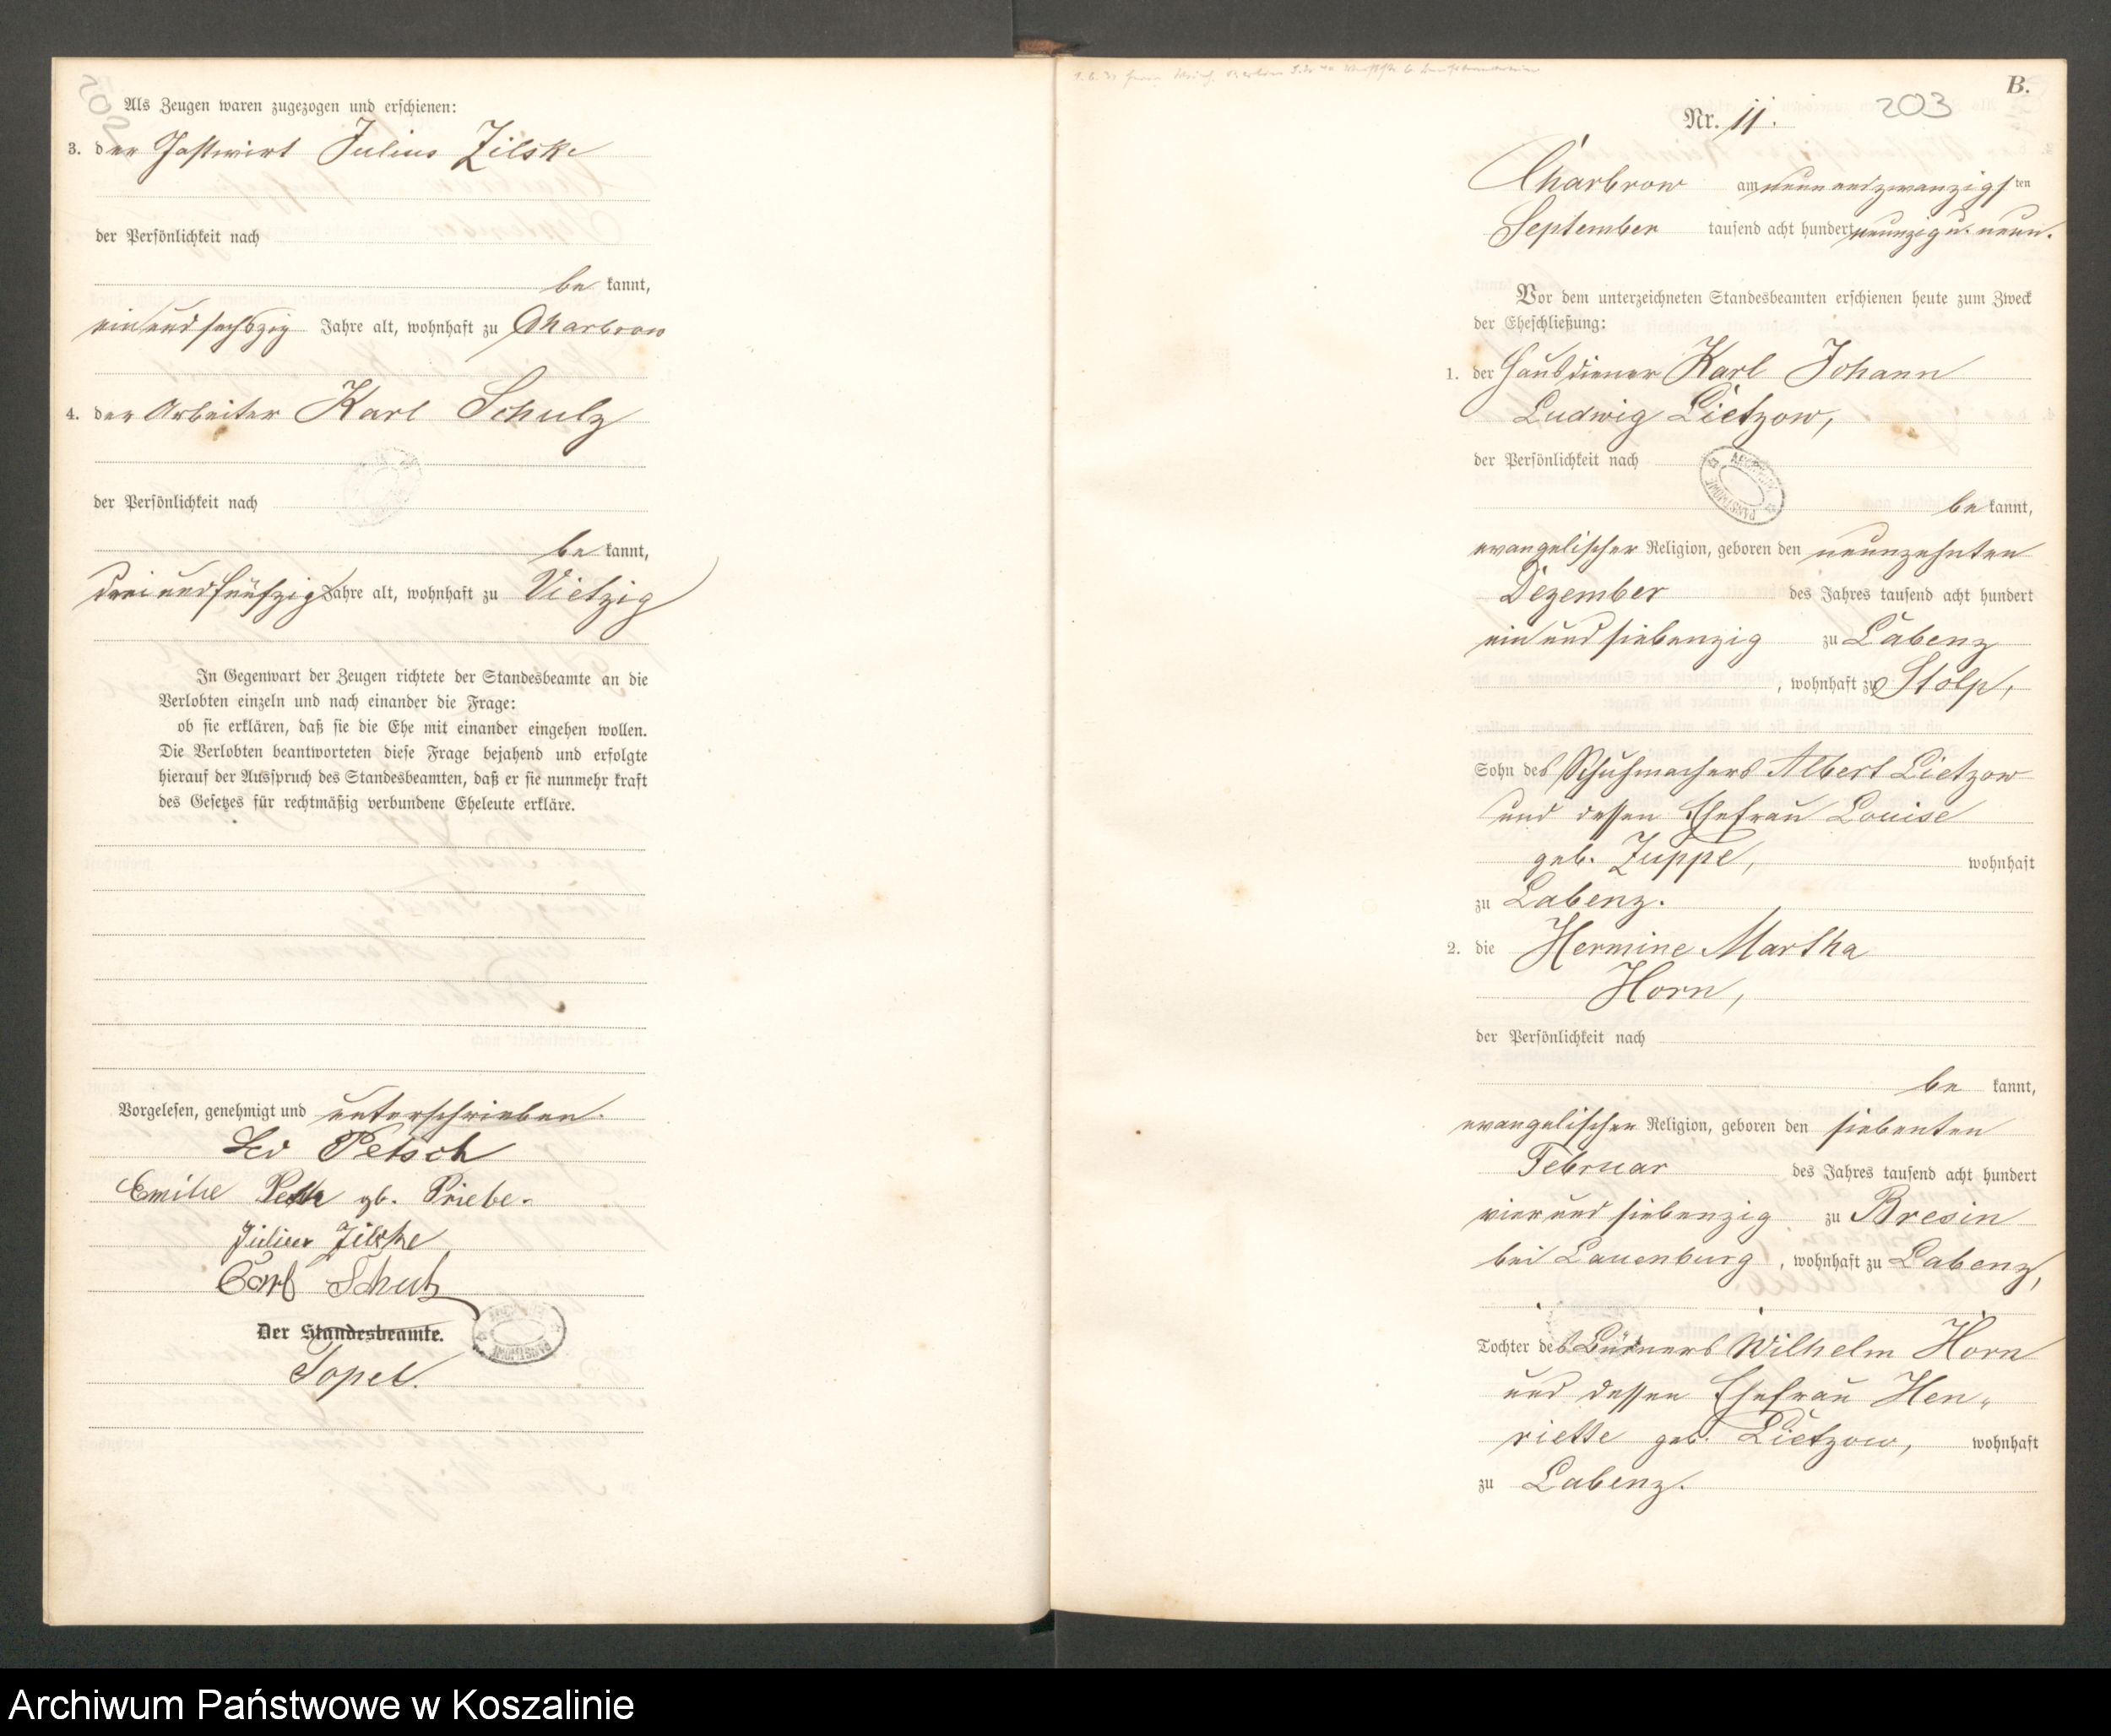 Als Zeugen waren zugezogen und erschienen:
3. der Gastwirt Julius Zilske
der Persönlichkeit nach
be kannt,
ein und sechszig Jahre alt, wohnhaft zu Charbrow
4. der Arbeiter Karl Schulz
der Persönlichkeit nach
be kannt,
drei und fünfzig Jahre alt, wohnhaft zu Vietzig
In Gegenwart der Zeugen richtete der Standesbeamte an die
Verlobten einzeln und nach einander die Frage:
ob sie erklären, daß sie die Ehe mit einander eingehen wollen.
Die Verlobten beantworteten diese Frage bejahend und erfolgte
hierauf der Ausspruch des Standesbeamten, daß er sie nunmehr kraft
des Gesetzes für rechtmäßig verbundene Eheleute erkläre.
Vorgelesen, genehmigt und unterschrieben.
Petsch
Emilie gb. Priebe.
Julius Zilske
Carl Schulz
Der Standesbeamte.
Topel.
B.
203
Nr. 11.
Charbrow am neun und zwanzigsten
September tausend acht hundert neunzig u. neun.
Vor dem unterzeichneten Standesbeamten erschienen heute zum Zweck
der Eheschließung:
1. der Hausdiener Karl Johann
Ludwig Lietzow,
der Persönlichkeit nach
be kannt,
evangelischer Religion, geboren den neunzehnten
Dezember des Jahres tausend acht hundert
ein und siebenzig zu Labenz
, wohnhaft zu Stolp,
Sohn des Schuhmachers Albert Lietzow
und dessen Ehefrau Louise
geb. Zuppe, wohnhaft
zu Labenz.
2. die Hermine Martha
Horn,
der Persönlichkeit nach
be kannt,
evangelischer Religion, geboren den siebenten
Februar des Jahres tausend acht hundert
vier und siebenzig zu Bresin
bei Lauenburg, wohnhaft zu Labenz,
Tochter des Büdners Wilhelm Horn
und dessen Ehefrau Hen„
riette geb. Lietzow, wohnhaft
zu Labenz.
Archiwum Państwowe w Koszalinie